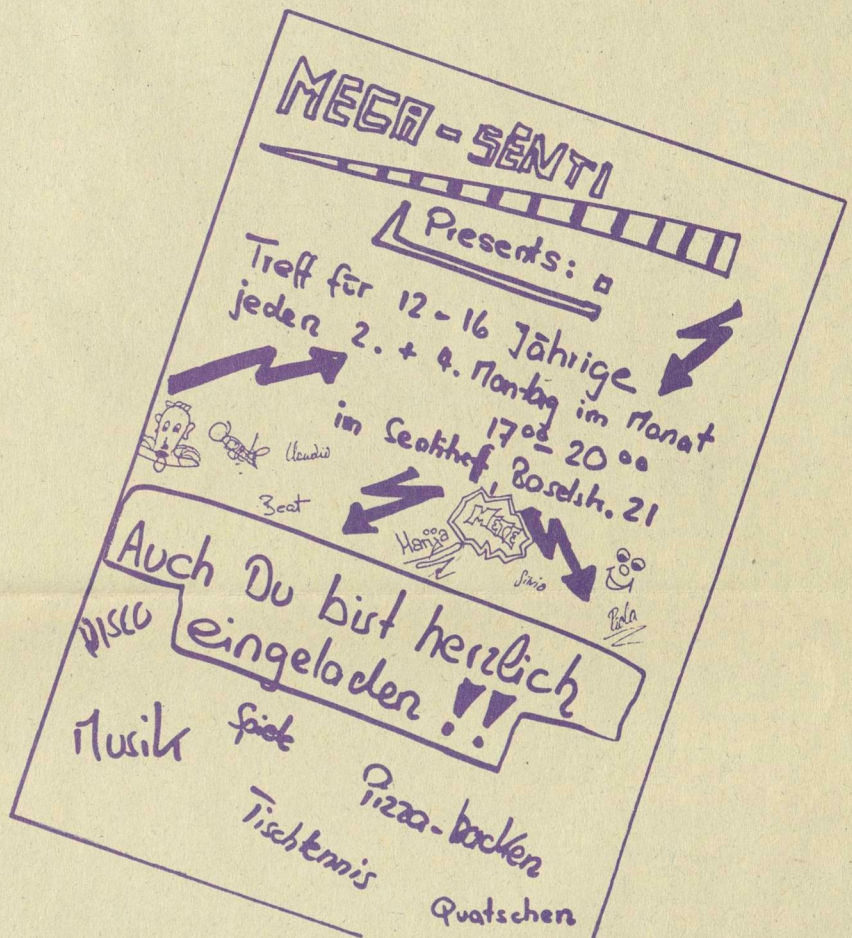 MEGA - SENTI
Presents:
Treff für 12 - 16 Jährige
jeden 2. + 4. Montag im Monat
17⁰⁰ - 20⁰⁰
im Sentihof, Baselstr. 21
Claudio
Beat
Manja
Silvio
Auch Du bist herzlich
eingeladen !!
DISCO
Musik
Spiele
Pizza-backen
Tischtennis
Quatschen